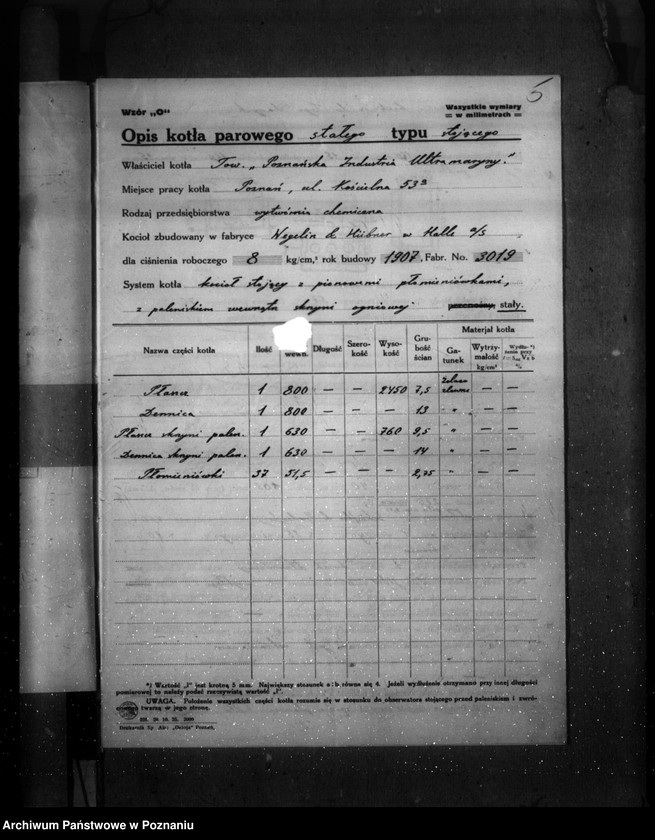 5
Wzór „O“
Wszystkie wymiary
= w milimetrach =
Opis kotła parowego stałego typu stojącego
Właściciel kotła Tow. „Poznańska Industria Ultramaryny."
Miejsce pracy kotła Poznań, ul. Kościelna 53ª
Rodzaj przedsiębiorstwa wytwórnia chemiczna
Kocioł zbudowany w fabryce Wegelin & Hübner w Halle a/S
dla ciśnienia roboczego 8 kg/cm,² rok budowy 1907, Fabr. No. 3019
System kotła kocioł stojący z pionowemi płomieniówkami,
z paleniskiem wewnątrz skrzyni ogniowej przenośny, stały.
Nazwa części kotła Ilość wewn. Długość Szerokość Wysokość Grubość ścian Materjał kotła
Gatunek Wytrzymałość kg/cm²
Płaszcz 1 800 — — 2450 7,5 żelazo zlewne — —
Dennica 1 800 — — — 13 " — —
Płaszcz skrzyni palen. 1 630 — — 760 9,5 " — —
Dennica skrzyni palen. 1 630 — — — 14 " — —
Płomieniówki 37 51,5 — — — 2,75 " — —
*) Wartość „l" jest krotną 5 mm. Największy stosunek a : b równa się 4. Jeżeli wydłużenie otrzymano przy innej długości
pomiarowej to należy podać rzeczywistą wartość „l".
UWAGA. Położenie wszystkich części kotła rozumie się w stosunku do obserwatora stojącego przed paleniskiem i zwró-
twarzą w jego stronę.
Drukarnia Sp. Akc. „Ostoja" Poznań.
Archiwum Państwowe w Poznaniu